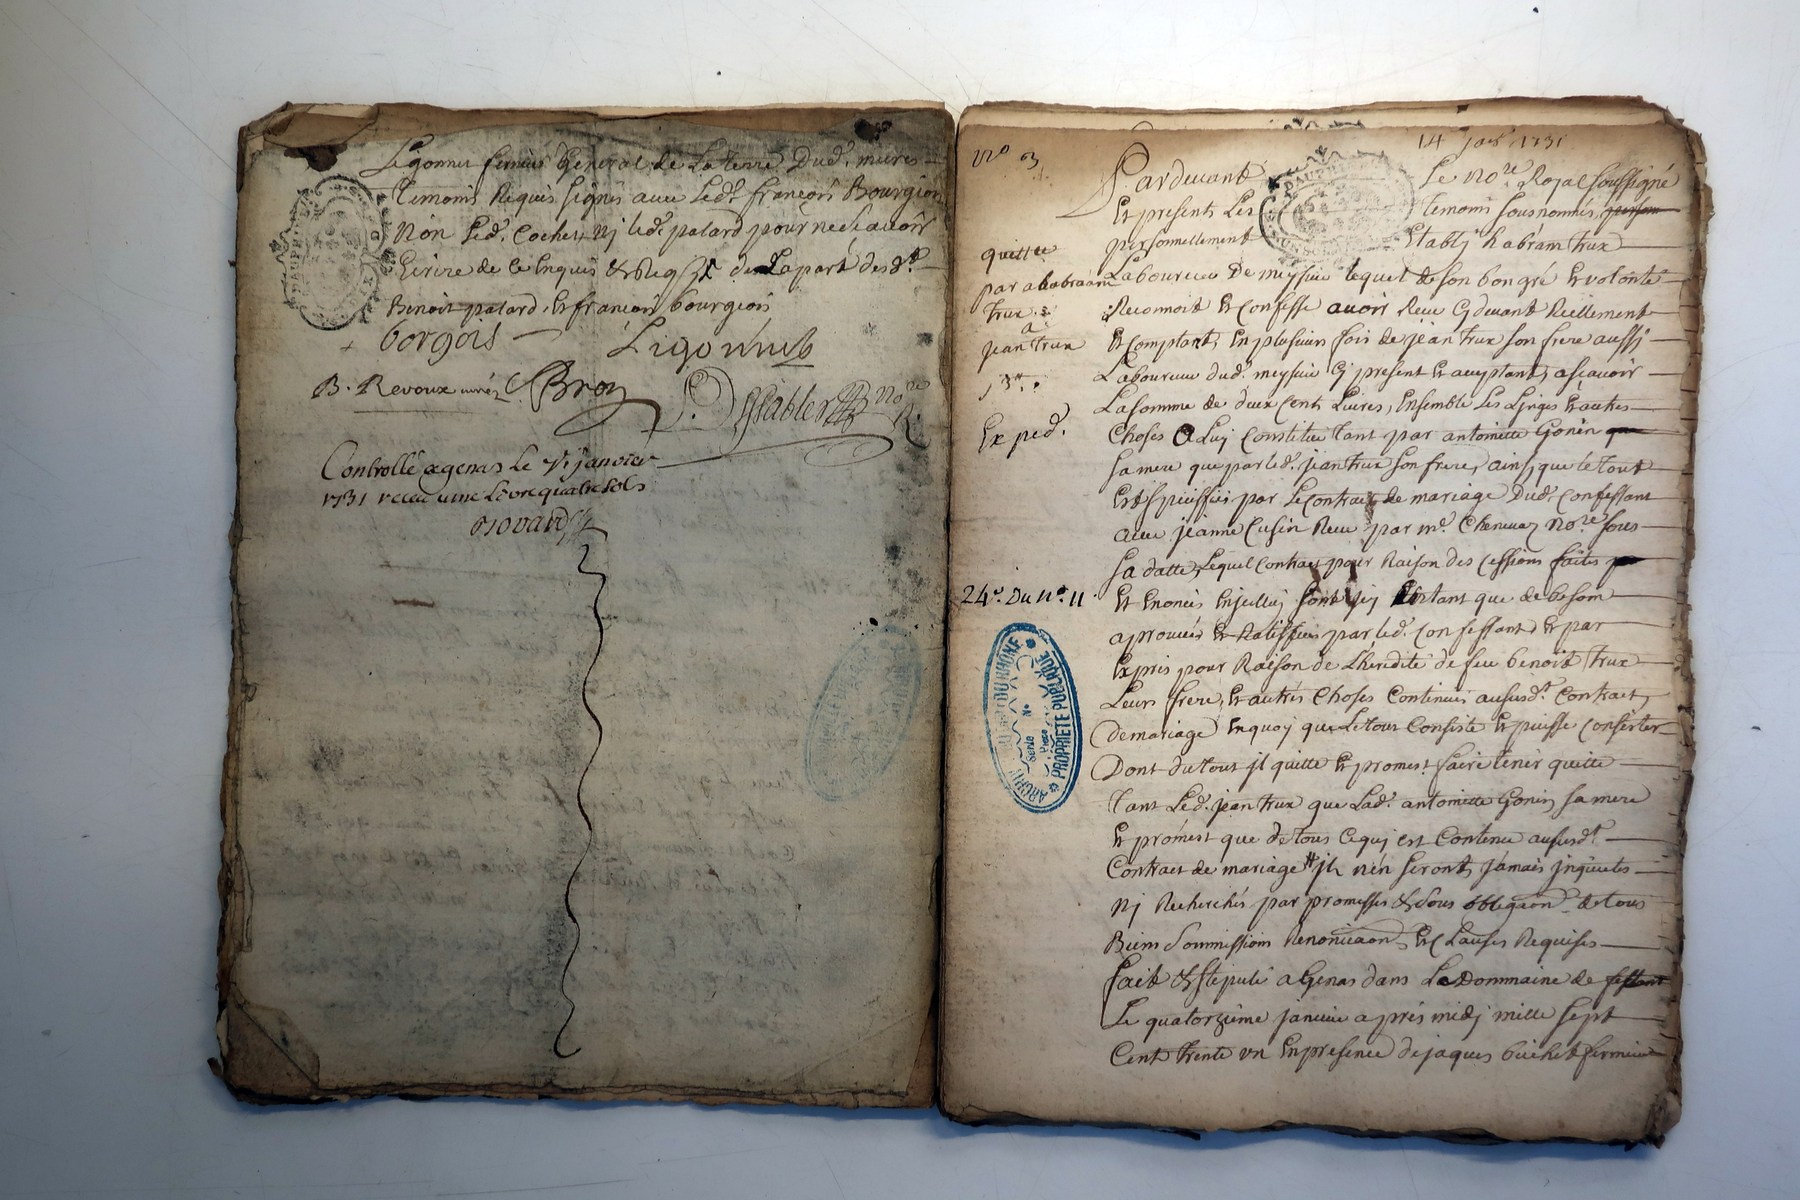 Ligonnet fermier General de La terre Dud. mures
temoins Requis signés avec Led. françois Bourgeois
Non Led. Cochet Nj led. patard pour ne sçavoir
Ecrire de ce Enquis & Requis de La part des dts
Benoit patard, Et françois bourgeois
borgois Ligonnet
B. Revoux Bron
Sablier Nore
Controllé a genas Le janvier
1731 receu une Livre quatre sols
No 3
14 janr 1731
Pardevant Le Nore Royal soussigné
Et presents Les temoins sousnommés
personnellement Etablj habram trux
Laboureur De meysieu lequel de son bon gré Et volonté
Reconnoit Et confesse avoir Receu Cj devant Reellement
Et comptant, En plusieurs fois de jean trux son frere aussj
Laboureur dud. meysieu Cj present Et acceptant, asçavoir
La somme de deux Cents Livres, Ensemble Les Linges Et autres
Choses a Luj Constitué tant par antoinette Gonin
sa mere que par led. jean trux son frere, ainsj que le tout
Est Speciffié par Le contract de mariage Dud. confessant
avec jeanne Cusin Receu par me. Chenavaz Nore sous
sa datte, Lequel contract pour Raison des cessions faites
Et Enoncés En jcelluj sont jcj En tant que de besoin
aprouvés Et Ratiffiés par led. Confessant Et par
Exprès pour Raison de L'heredité de feu benoit trux
Leur frere, Et autres Choses Contenues au susdt. Contract
De mariage En quoj que Le tout Consiste Et puisse Consister
Dont du tout jl quitte Et promest faire tenir quitte
tant Led. jean trux que Lad. antoinette Gonin sa mere
Et promest que de tous Ce quj est Contenu au susdt.
Contract de mariage jls n'en seront jamais jnquietés
Nj Recherchés par promesses & sous obligaon de tous
Biens soummissions Renonciaons Et Clauses Requises
fait & stipulé a Genas dans Le Dommaine de
Le quatorzième janvier après midj mille sept
Cents trente un En presence de jaques buchet fermier
quittee
par ahabraam
trux
a
jean trux
Exped.
24e. Du No. 11
PROPRIÉTÉ PUBLIQUE